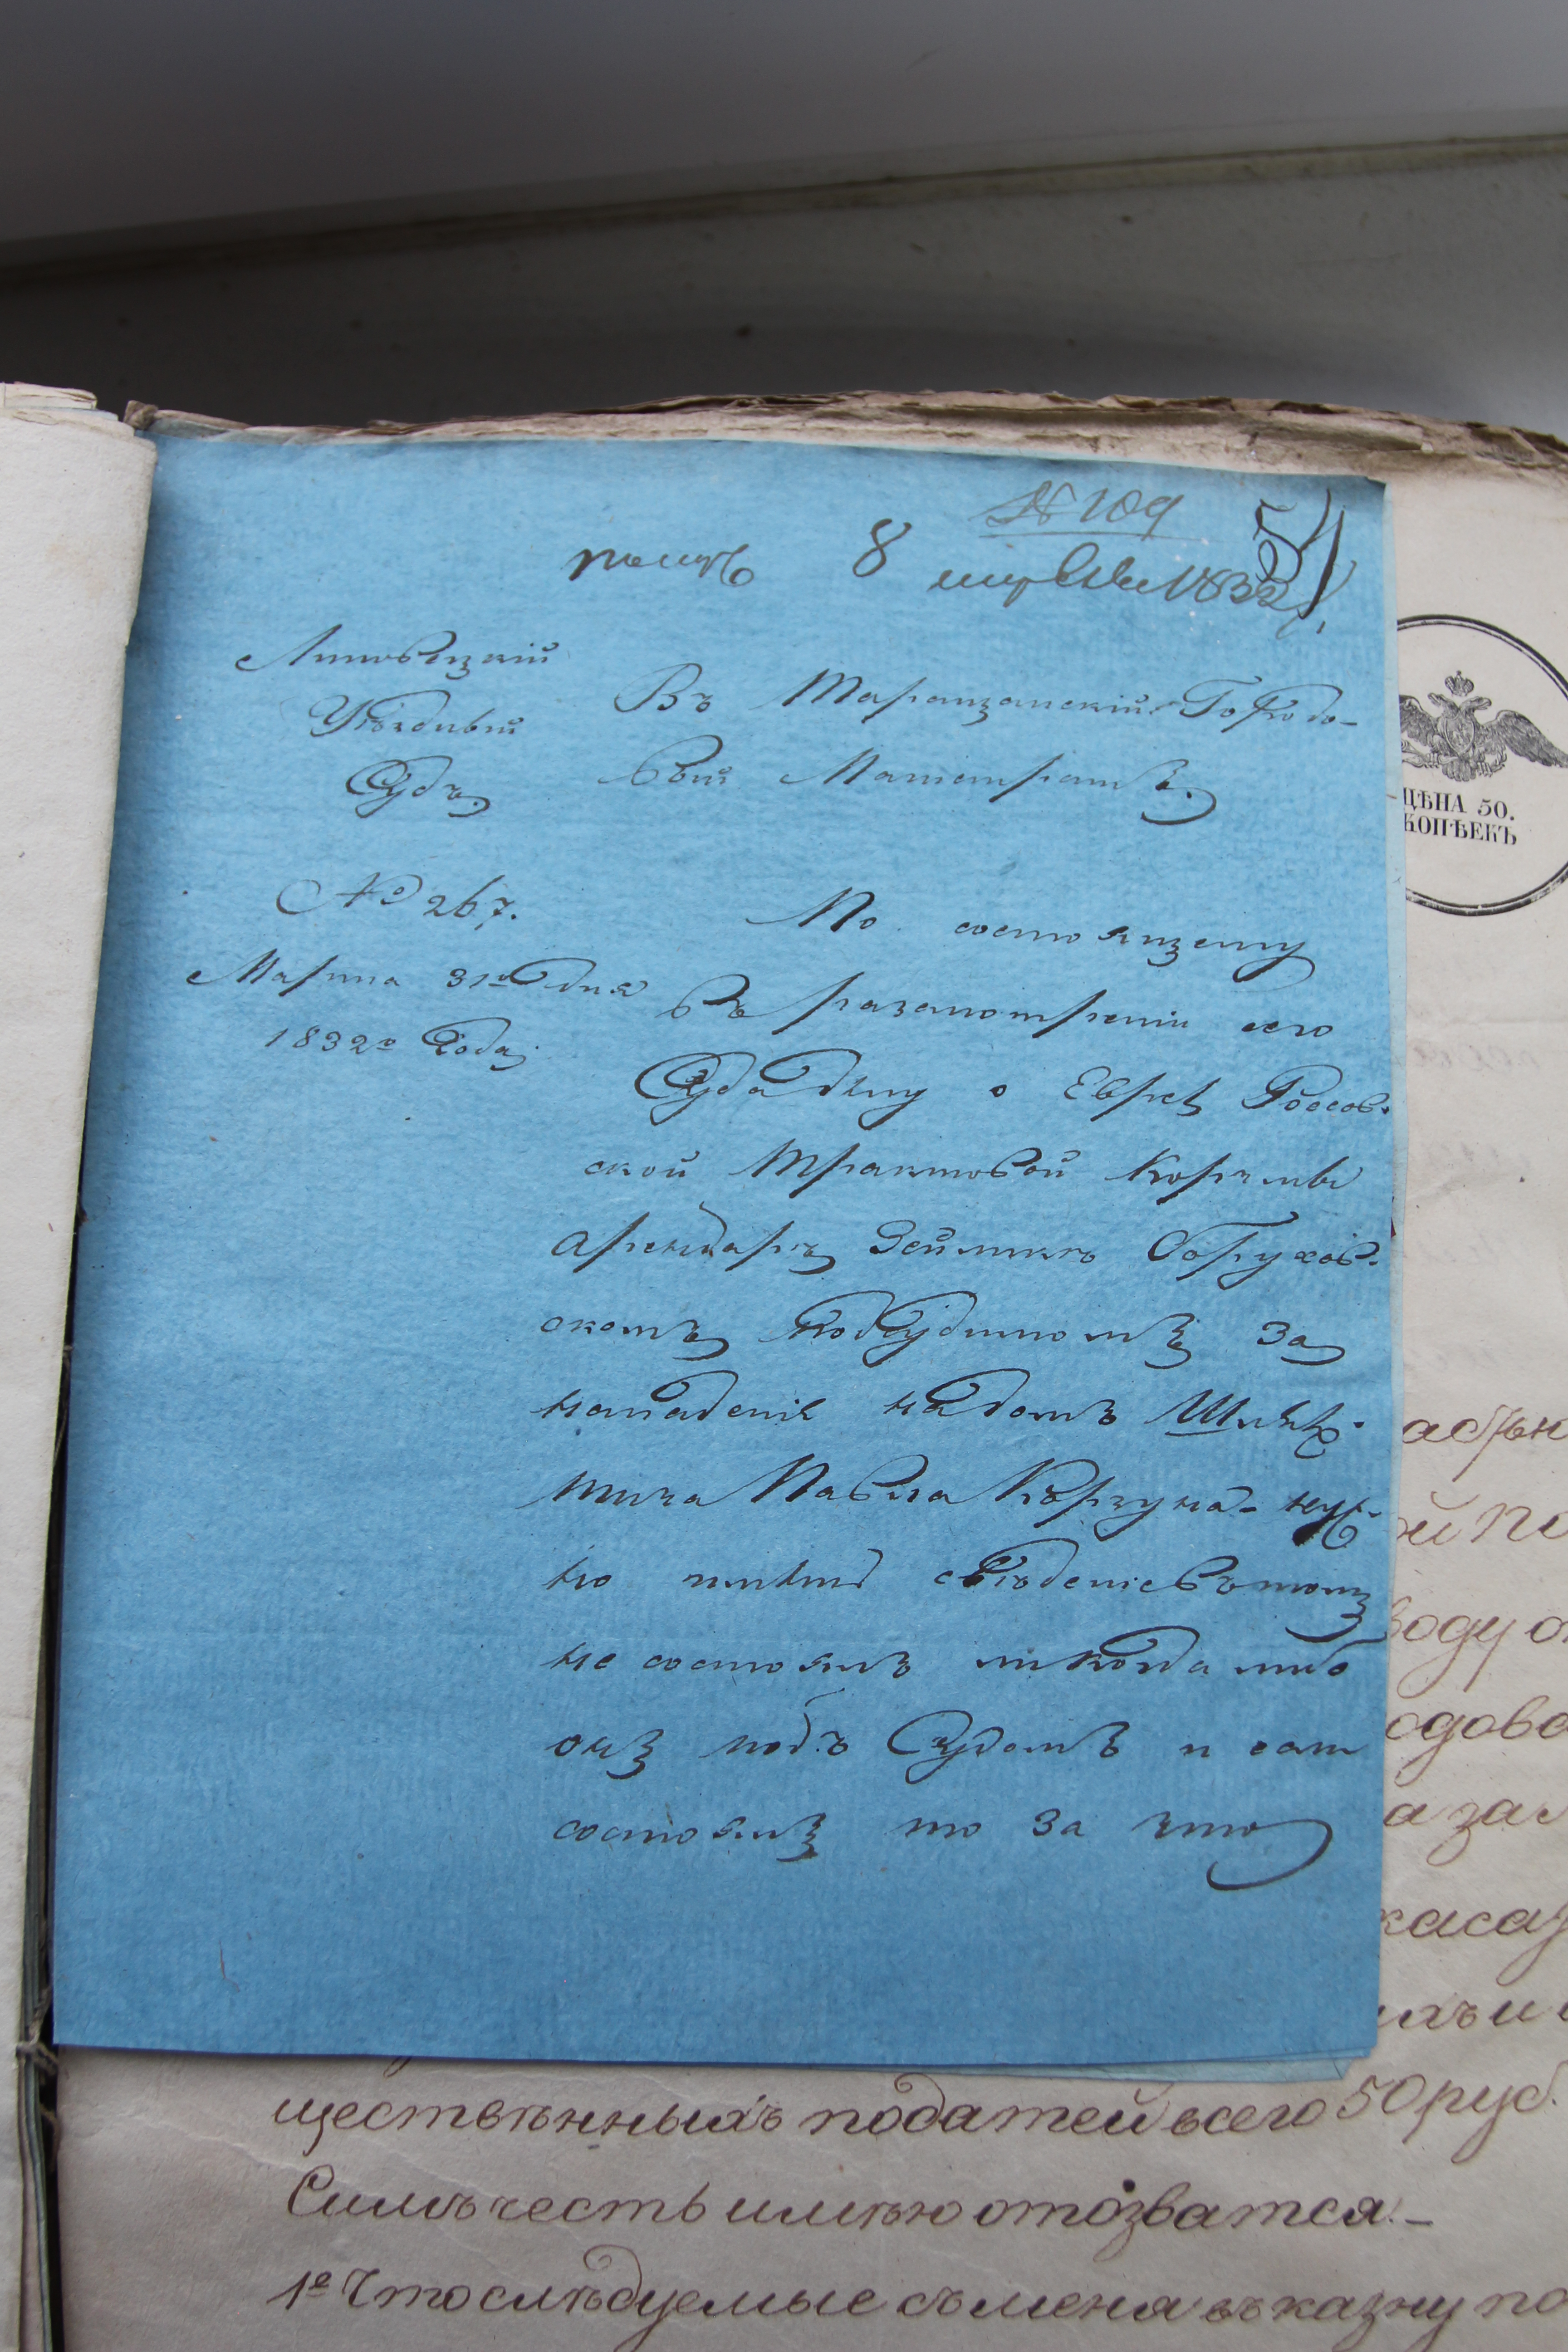 № 109
54
получ 8 апреля 1832
Липовецкій
Уѣздный
Судъ
№ 267.
Марта 31го дня
1832го Года
Въ Таращанскій Городо-
вый Магистратъ.
По состоящему
въ разсмотреніи сего
Суда дѣлу о Евреѣ Россов-
ской трактовой Корчмы
арендарѣ Зейликѣ Борухов-
скомъ подсудимомъ за
нападеніе на домъ Шлях-
тича Павла Корчуна - нуж-
но имѣть свѣденіе въ томъ
не состоялъ ли когда либо
онъ подъ Судомъ и если
состоялъ то за что
ЦѢНА 50.
КОПѢЕКЪ
оду о
одово
а за
каса
ществѣнныхъ податей всего 50 руб.
Симъ честь имѣю отозватся. -
1е Что слѣдуемые съ меня въ казну по